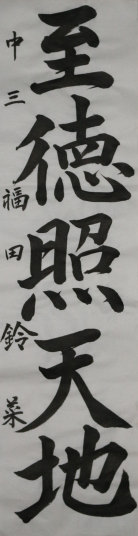 至德照天地
中三 福田鈴菜